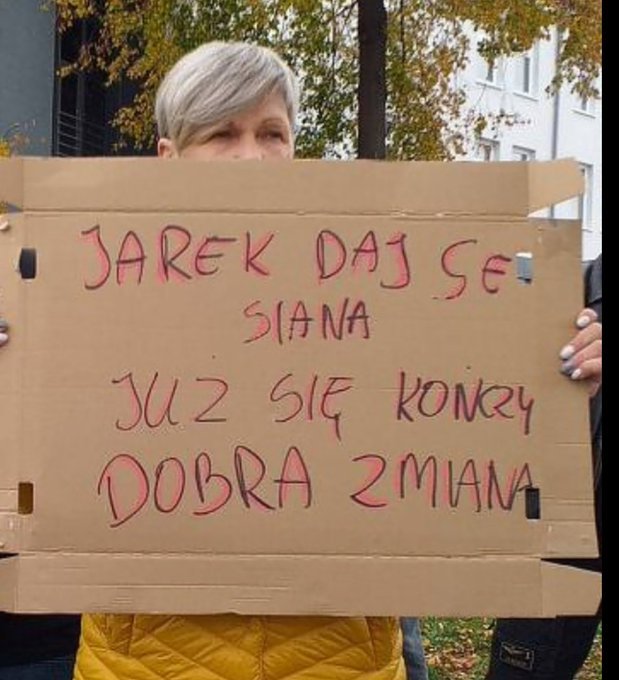 JAREK DAJ SE
SIANA
JUZ SIĘ KOŃCZY
DOBRA ZMIANA